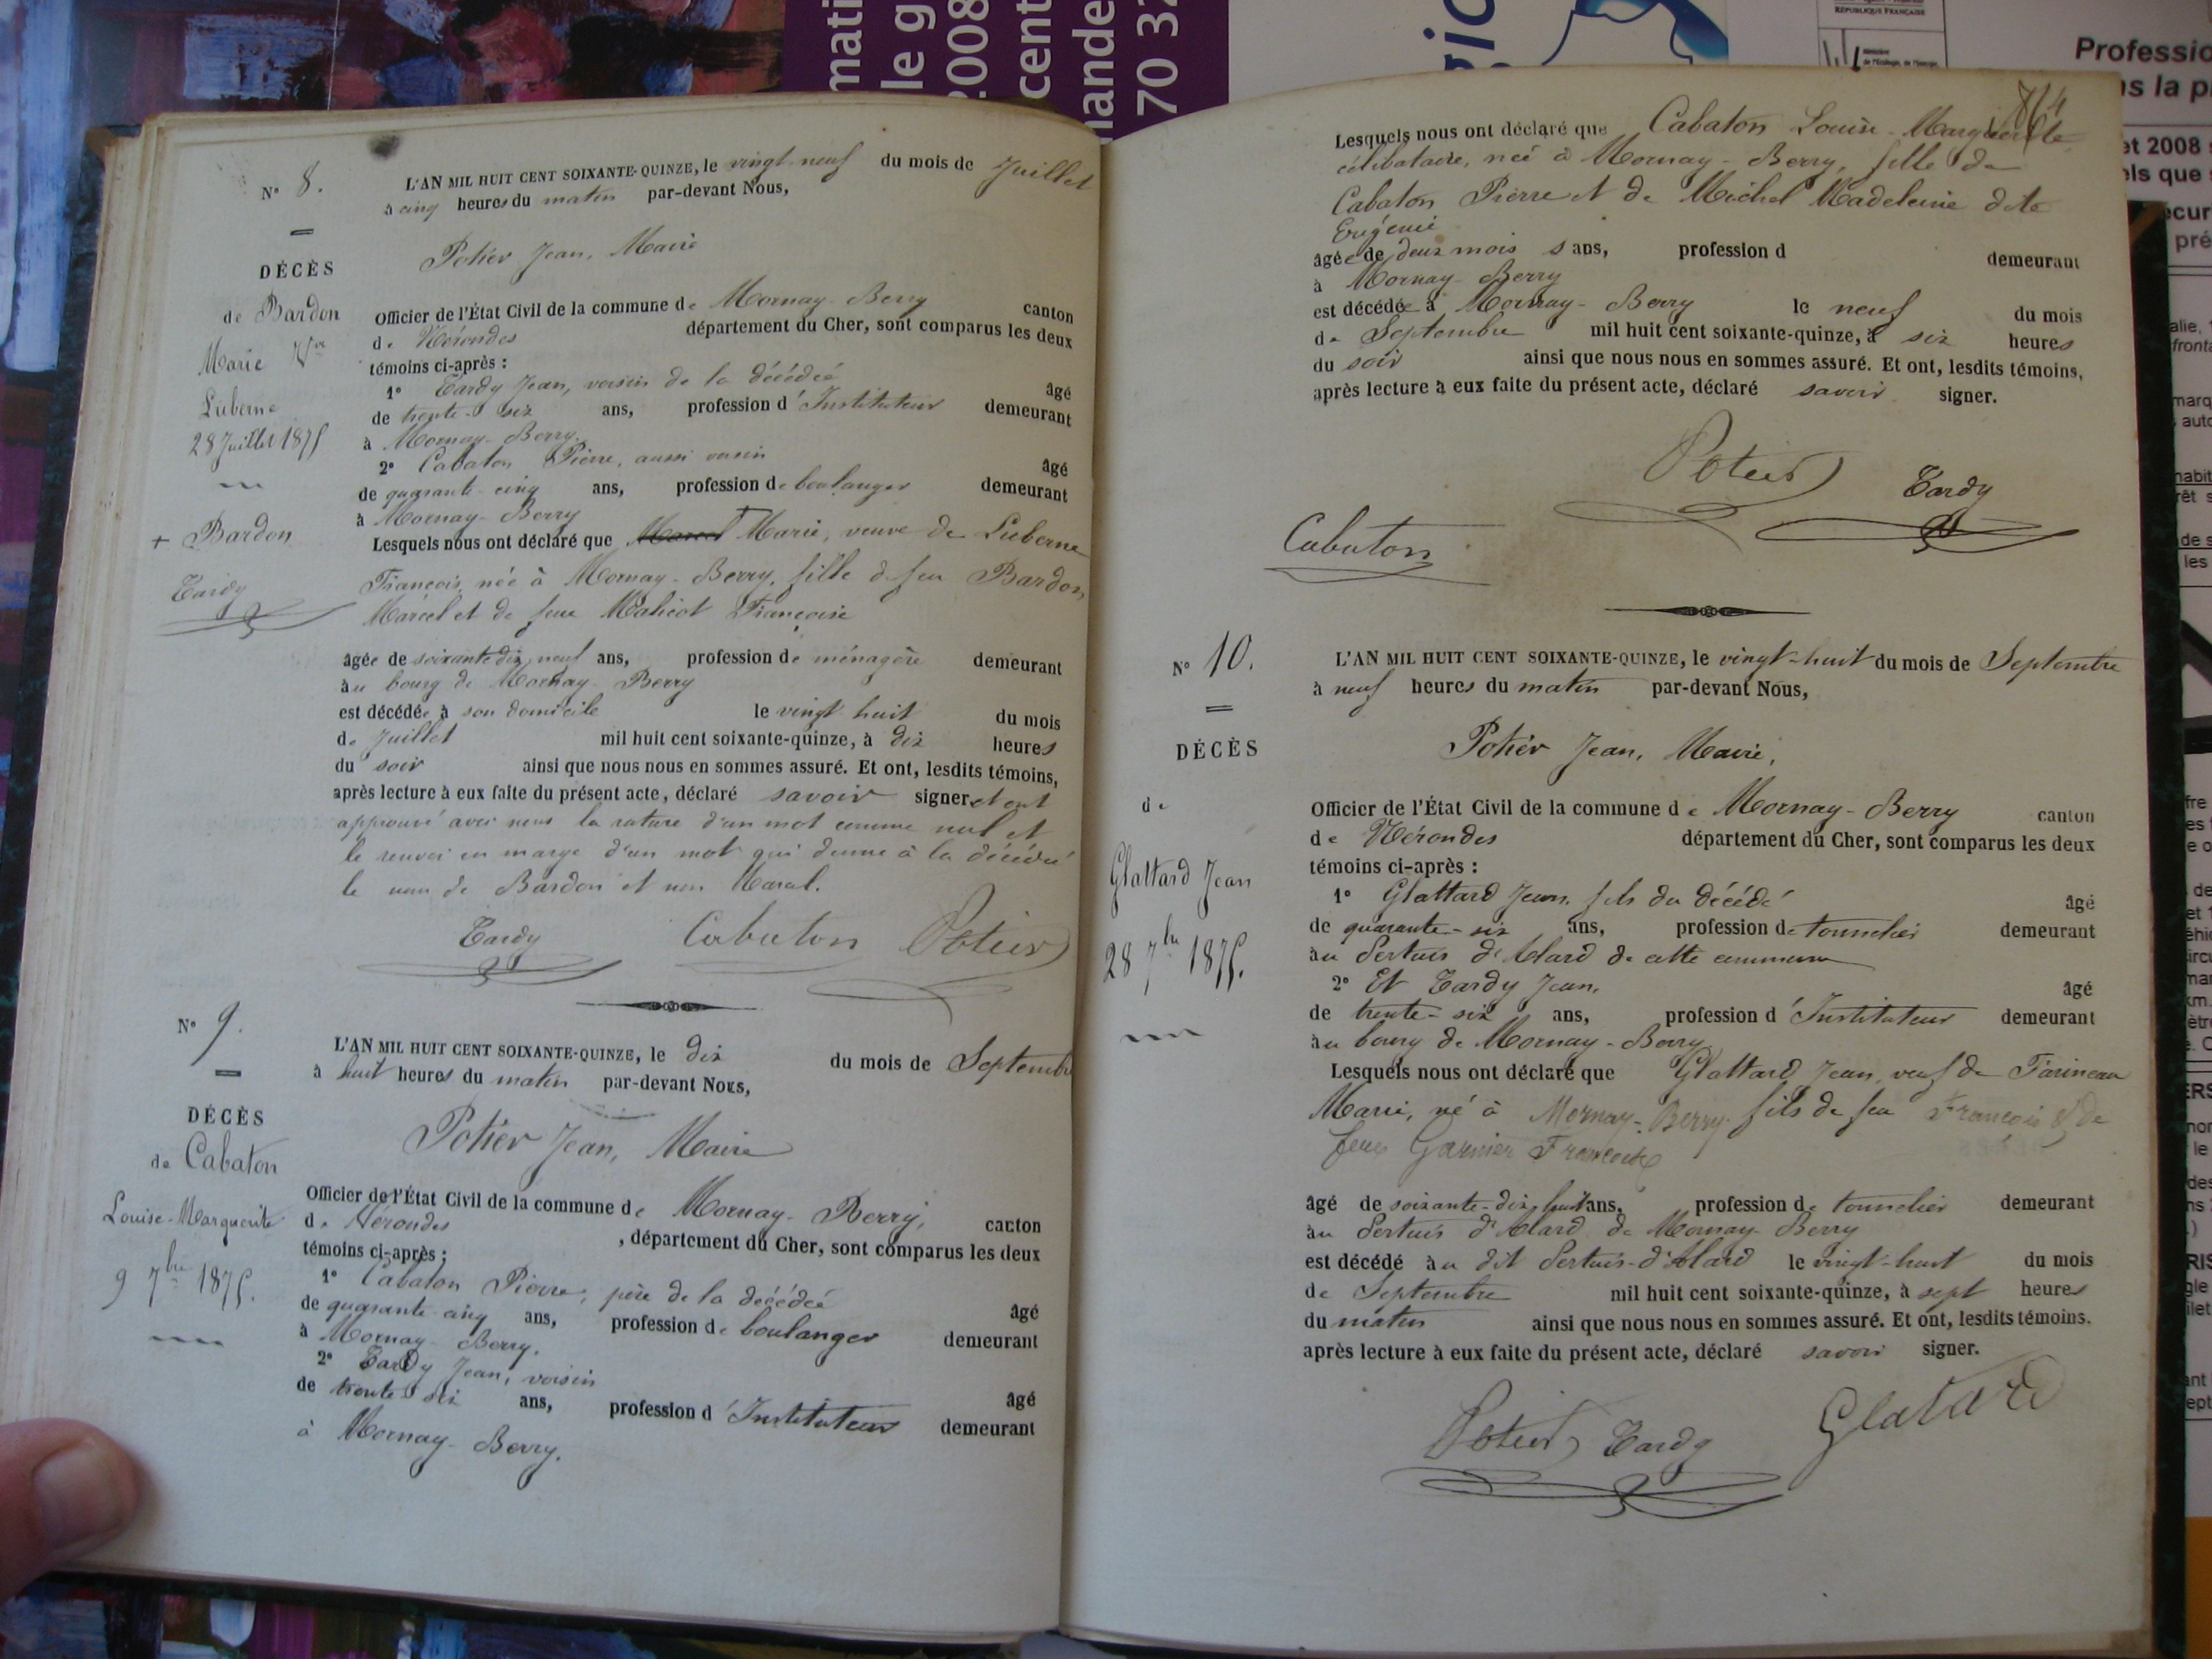 N° 8.
DÉCÈS
de Bardon
Marie Vve
Luberne
28 Juillet 1875
+ Bardon
Tardy
L'AN MIL HUIT CENT SOIXANTE-QUINZE, le vingt-neuf du mois de Juillet
à cinq heures du matin par-devant Nous,
Potier Jean, Maire
Officier de l'État Civil de la commune de Mornay-Berry canton
de Nérondes département du Cher, sont comparus les deux
témoins ci-après :
1° Tardy Jean, voisin de la décédée âgé
de trente-six ans, profession d'Instituteur demeurant
à Mornay-Berry.
2° Cabaton Pierre, aussi voisin âgé
de quarante-cinq ans, profession de boulanger demeurant
à Mornay-Berry
Lesquels nous ont déclaré que Marcel + Marie, veuve de Luberne
François, née à Mornay-Berry, fille de feu Bardon
Marcel et de feue Malicot Françoise
âgée de soixante dix neuf ans, profession de ménagère demeurant
au bourg de Mornay-Berry
est décédée à son domicile le vingt huit du mois
de Juillet mil huit cent soixante-quinze, à dix heures
du soir ainsi que nous nous en sommes assuré. Et ont, lesdits témoins,
après lecture à eux faite du présent acte, déclaré savoir signer et ont
approuvé avec nous la rature d'un mot comme nul et
le renvoi en marge d'un mot qui donne à la décédée
le nom de Bardon et non Marcel.
Tardy Cabaton Potier
N° 9.
DÉCÈS
de Cabaton
Louise-Marguerite
9 7bre 1875.
L'AN MIL HUIT CENT SOIXANTE-QUINZE, le dix du mois de Septembre
à huit heures du matin par-devant Nous,
Potier Jean, Maire
Officier de l'État Civil de la commune de Mornay-Berry, canton
de Nérondes, département du Cher, sont comparus les deux
témoins ci-après :
1° Cabaton Pierre, père de la décédée âgé
de quarante-cinq ans, profession de boulanger demeurant
à Mornay-Berry.
2° Tardy Jean, voisin âgé
de trente-six ans, profession d'Instituteur demeurant
à Mornay-Berry.
Lesquels nous ont déclaré que Cabaton Louise-Marguerite
célibataire, née à Mornay-Berry, fille de
Cabaton Pierre et de Michel Madeleine dite
Eugénie
âgée de deux mois s ans, profession d demeurant
à Mornay-Berry
est décédée à Mornay-Berry le neuf du mois
de Septembre mil huit cent soixante-quinze, à six heures
du soir ainsi que nous nous en sommes assuré. Et ont, lesdits témoins,
après lecture à eux faite du présent acte, déclaré savoir signer.
Potier Tardy
Cabaton
N° 10.
DÉCÈS
de
Glattard Jean
28 7bre 1875.
L'AN MIL HUIT CENT SOIXANTE-QUINZE, le vingt-huit du mois de Septembre
à neuf heures du matin par-devant Nous,
Potier Jean, Maire,
Officier de l'État Civil de la commune de Mornay-Berry canton
de Nérondes département du Cher, sont comparus les deux
témoins ci-après :
1° Glattard Jean, fils du décédé âgé
de quarante-six ans, profession de tonnelier demeurant
au Pertuis d'Alard de cette commune
2° Et Tardy Jean, âgé
de trente-six ans, profession d'Instituteur demeurant
au bourg de Mornay-Berry
Lesquels nous ont déclaré que Glattard Jean, veuf de Farineau
Marie, né à Mornay-Berry fils de feu François & de
feue Garnier Françoise
âgé de soixante-dix huit ans, profession de tonnelier demeurant
au Pertuis d'Alard de Mornay-Berry
est décédé au dit Pertuis-d'Alard le vingt-huit du mois
de Septembre mil huit cent soixante-quinze, à sept heures
du matin ainsi que nous nous en sommes assuré. Et ont, lesdits témoins.
après lecture à eux faite du présent acte, déclaré savoir signer.
Potier Tardy Glatard
RÉPUBLIQUE FRANÇAISE
2008
70 32